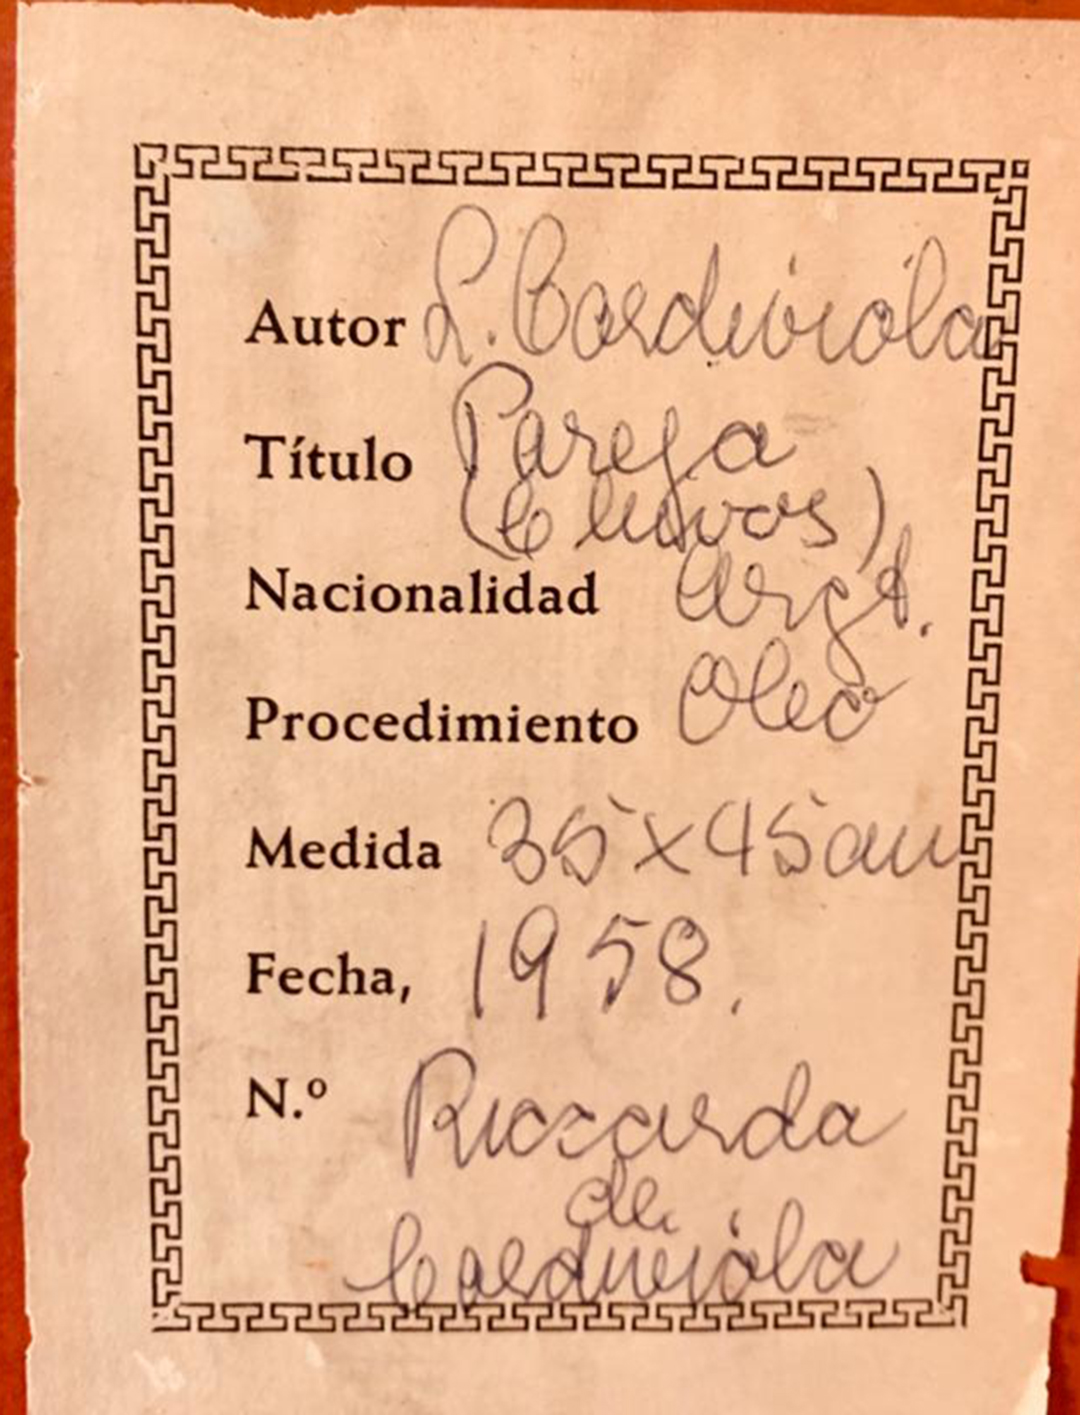 Autor L. Cordiviola
Título Pareja
(Chivos)
Nacionalidad Argt.
Procedimiento Oleo
Medida 35 x 45 cm
Fecha, 1958.
N.º Riccarda
de
Cordiviola